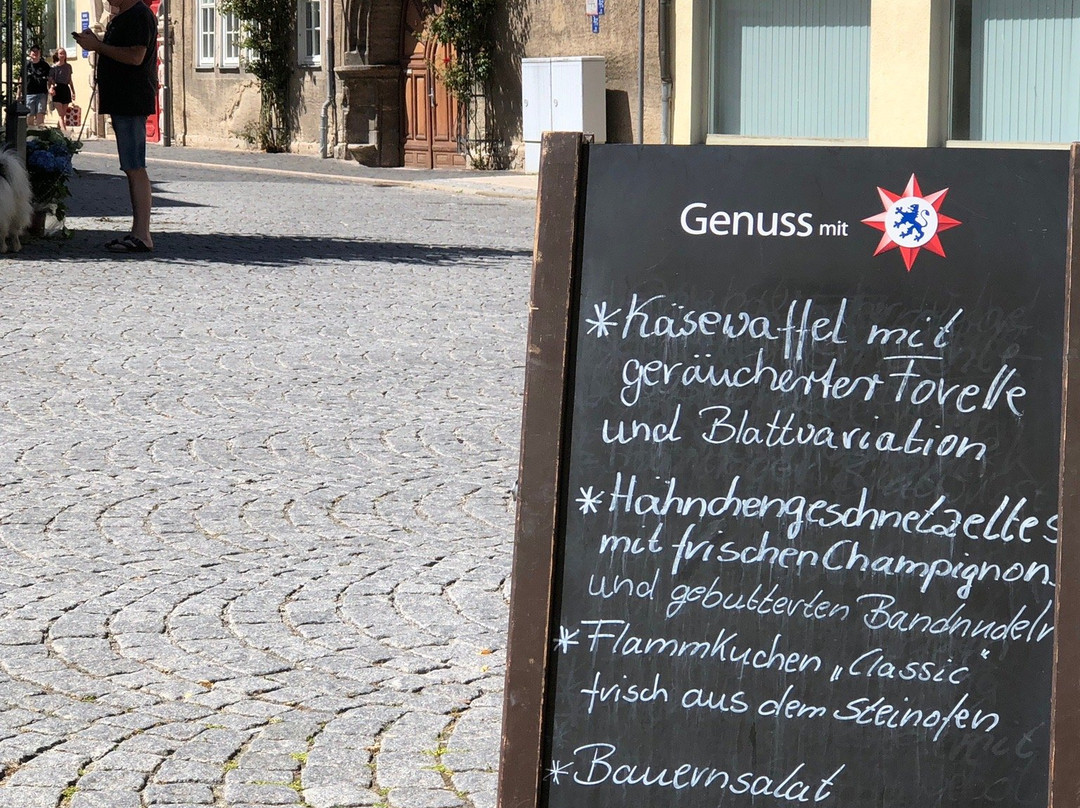 Genuss mit
* Käsewaffel mit
geräucherter Forelle
und Blattvariation
* Hähnchengeschnetzeltes
mit frischen Champignon
und gebutterten Bandnudeln
* Flammkuchen „Classic“
frisch aus dem Steinofen
* Bauernsalat